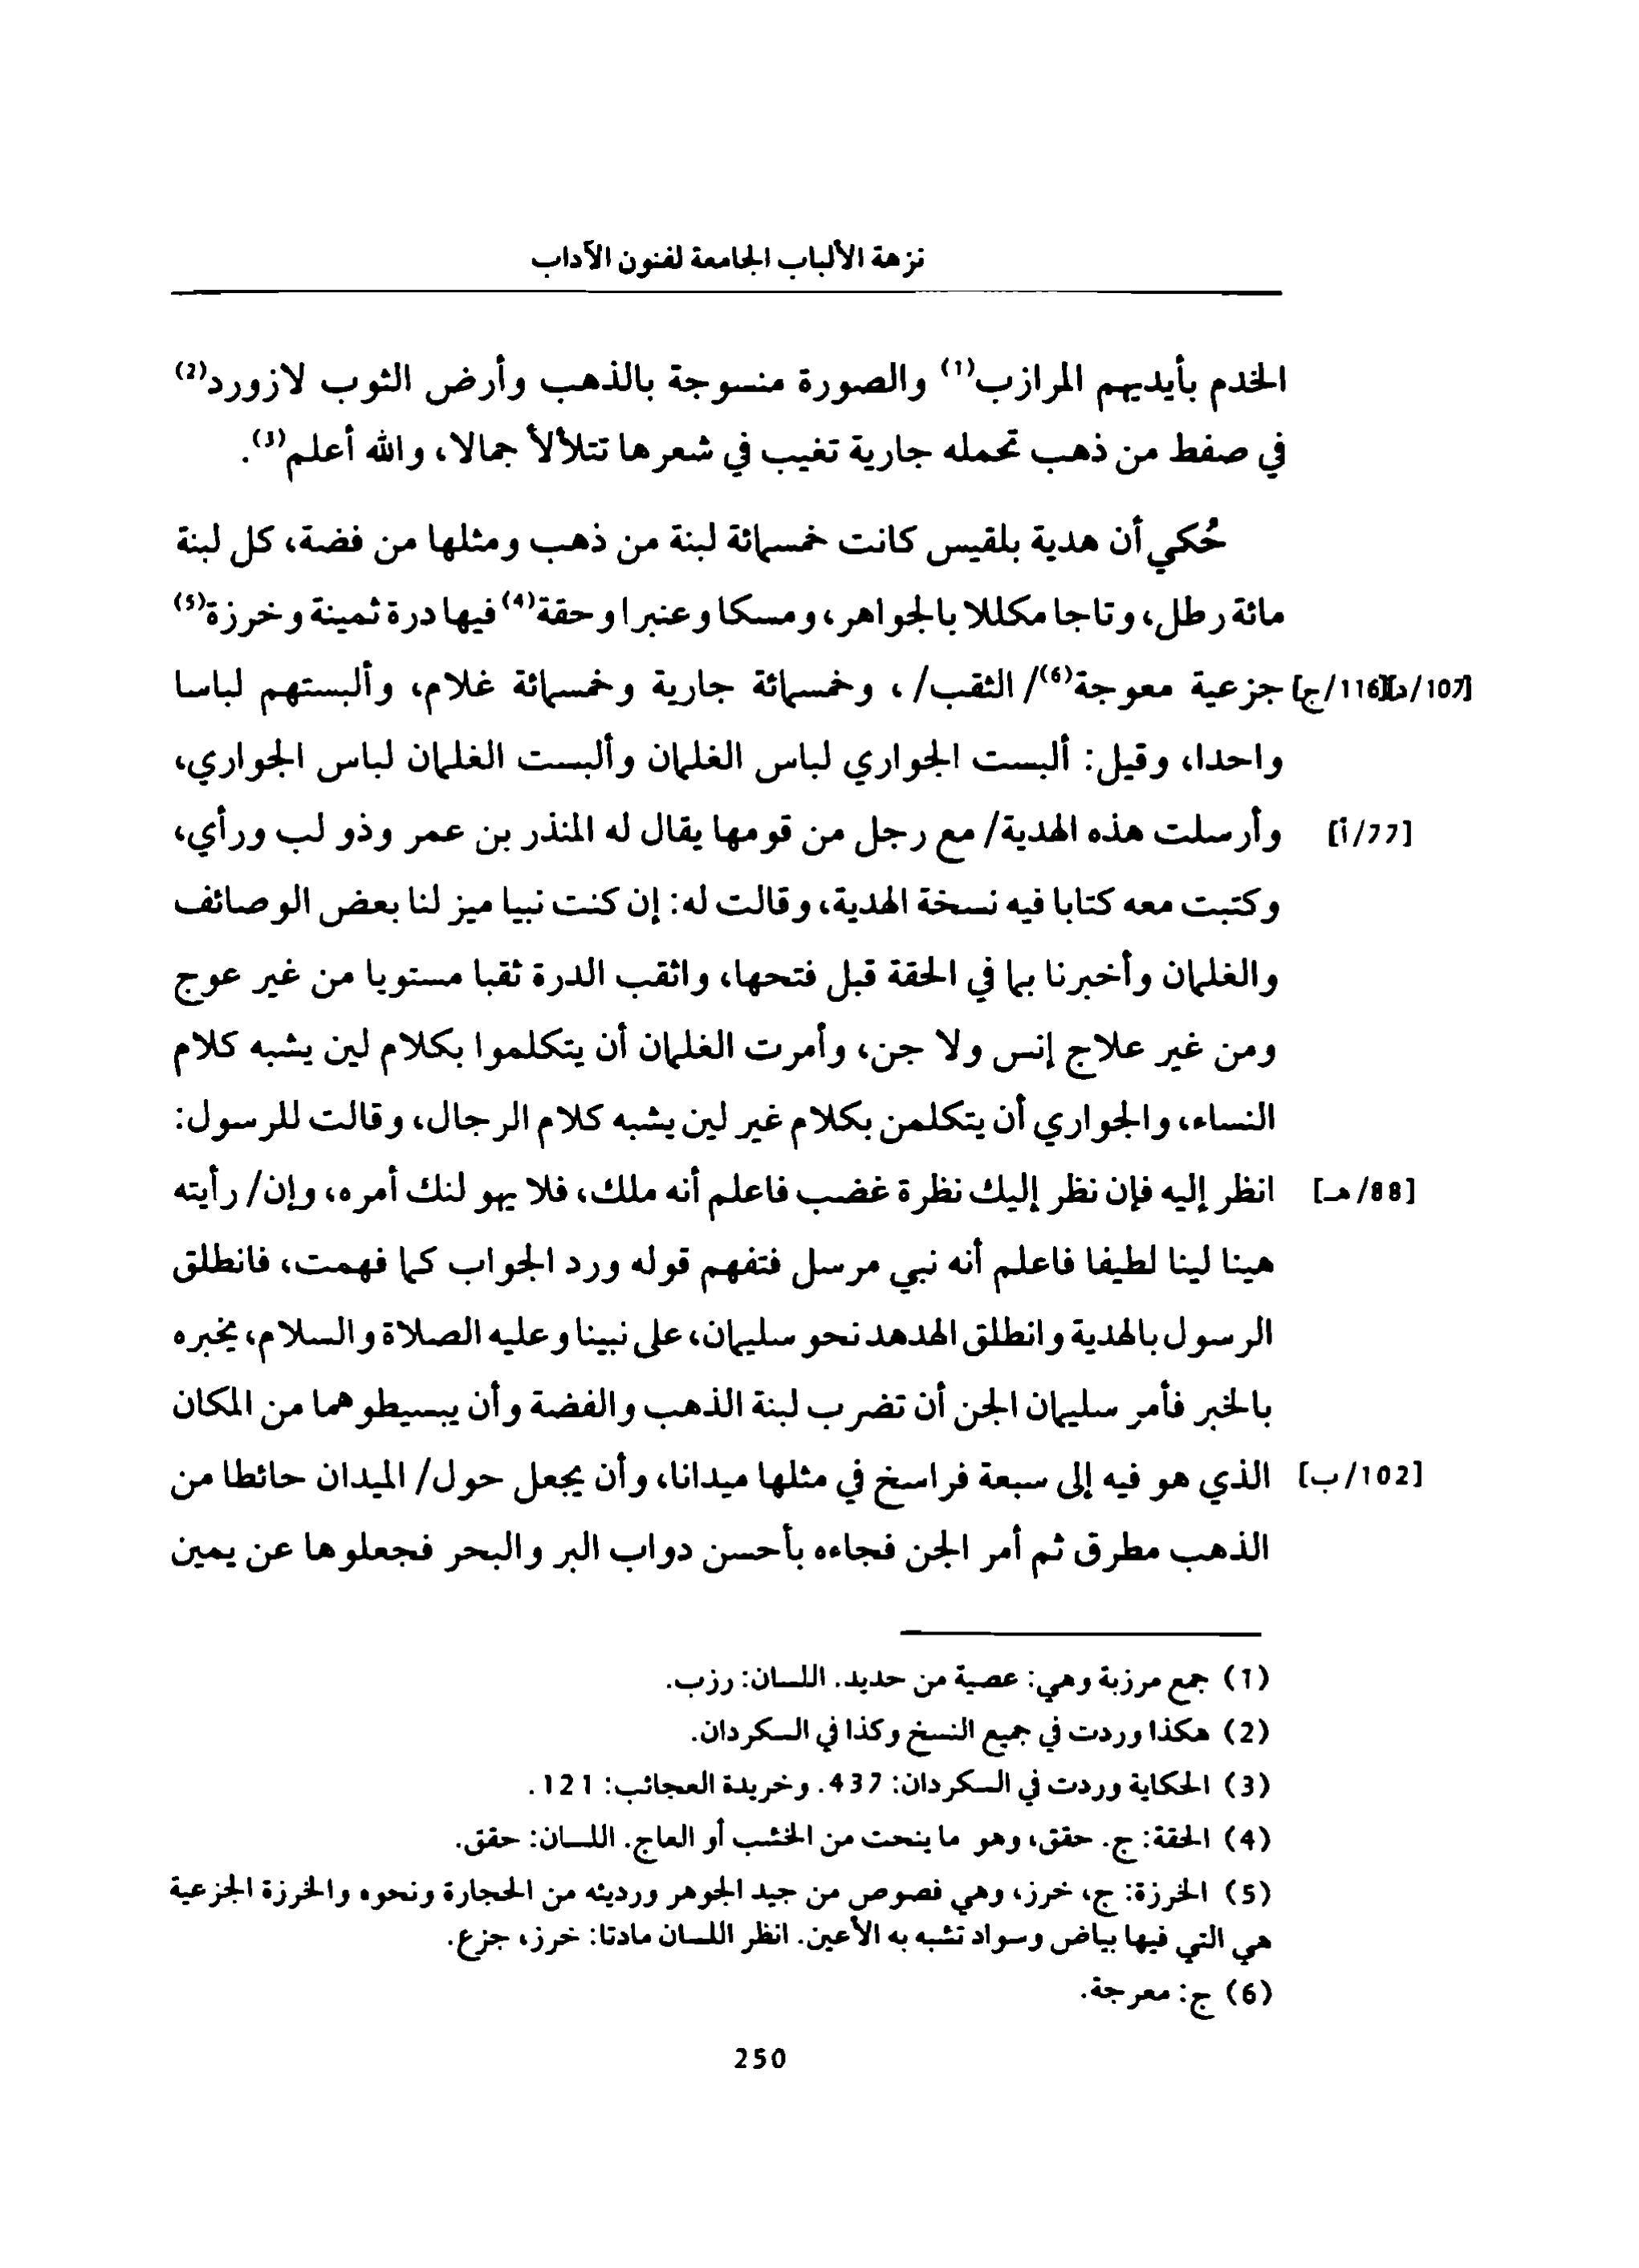 نزهة الألباب الجامعة لفنون الآداب
الخدم بأيديهم المرازب(1) والصورة منسوجة بالذهب وأرض الثوب لازورد(2)
في صفط من ذهب تحمله جارية تغيب في شعرها تتلألأ جمالا، والله أعلم(3).
حُكي أن هدية بلقيس كانت خمسمائة لبنة من ذهب ومثلها من فضة، كل لبنة
مائة رطل، وتاجا مكللا بالجواهر، ومسكا وعنبرا وحقة(4) فيها درة ثمينة وخرزة(5)
[107/د][116/ج] جزعية معوجة(6)/ الثقب/، وخمسمائة جارية وخمسمائة غلام، وألبستهم لباسا
واحدا، وقيل: ألبست الجواري لباس الغلمان وألبست الغلمان لباس الجواري،
[77/أ] وأرسلت هذه الهدية/ مع رجل من قومها يقال له المنذر بن عمر وذو لب ورأي،
وكتبت معه كتابا فيه نسخة الهدية، وقالت له: إن كنت نبيا ميز لنا بعض الوصائف
والغلمان وأخبرنا بما في الحقة قبل فتحها، واثقب الدرة ثقبا مستويا من غير عوج
ومن غير علاج إنس ولا جن، وأمرت الغلمان أن يتكلموا بكلام لين يشبه كلام
النساء، والجواري أن يتكلمن بكلام غير لين يشبه كلام الرجال، وقالت للرسول:
[88/هـ] انظر إليه فإن نظر إليك نظرة غضب فاعلم أنه ملك، فلا يهو لنك أمره، وإن/ رأيته
هينا لينا لطيفا فاعلم أنه نبي مرسل فتفهم قوله ورد الجواب كما فهمت، فانطلق
الرسول بالهدية وانطلق الهدهد نحو سليمان، على نبينا وعليه الصلاة والسلام، يخبره
بالخبر فأمر سليمان الجن أن تضرب لبنة الذهب والفضة وأن يبسيطوهما من المكان
[102/ب] الذي هو فيه إلى سبعة فراسخ في مثلها ميدانا، وأن يجعل حول/ الميدان حائطا من
الذهب مطرق ثم أمر الجن فجاءه بأحسن دواب البر والبحر فجعلوها عن يمين
(1) جمع مرزبة وهي: عصية من حديد. اللسان: رزب.
(2) هكذا وردت في جميع النسخ وكذا في السكردان.
(3) الحكاية وردت في السكردان: 437. وخريدة العجائب: 121.
(4) الحقة: ج. حقق، وهو ما ينحت من الخشب أو العاج. اللسان: حقق.
(5) الخرزة: ج، خرز، وهي فصوص من جيد الجوهر ورديئه من الحجارة ونحوه والخرزة الجزعية
هي التي فيها بياض وسواد تشبه به الأعين. انظر اللسان مادتا: خرز، جزع.
(6) ج: معرجة.
250